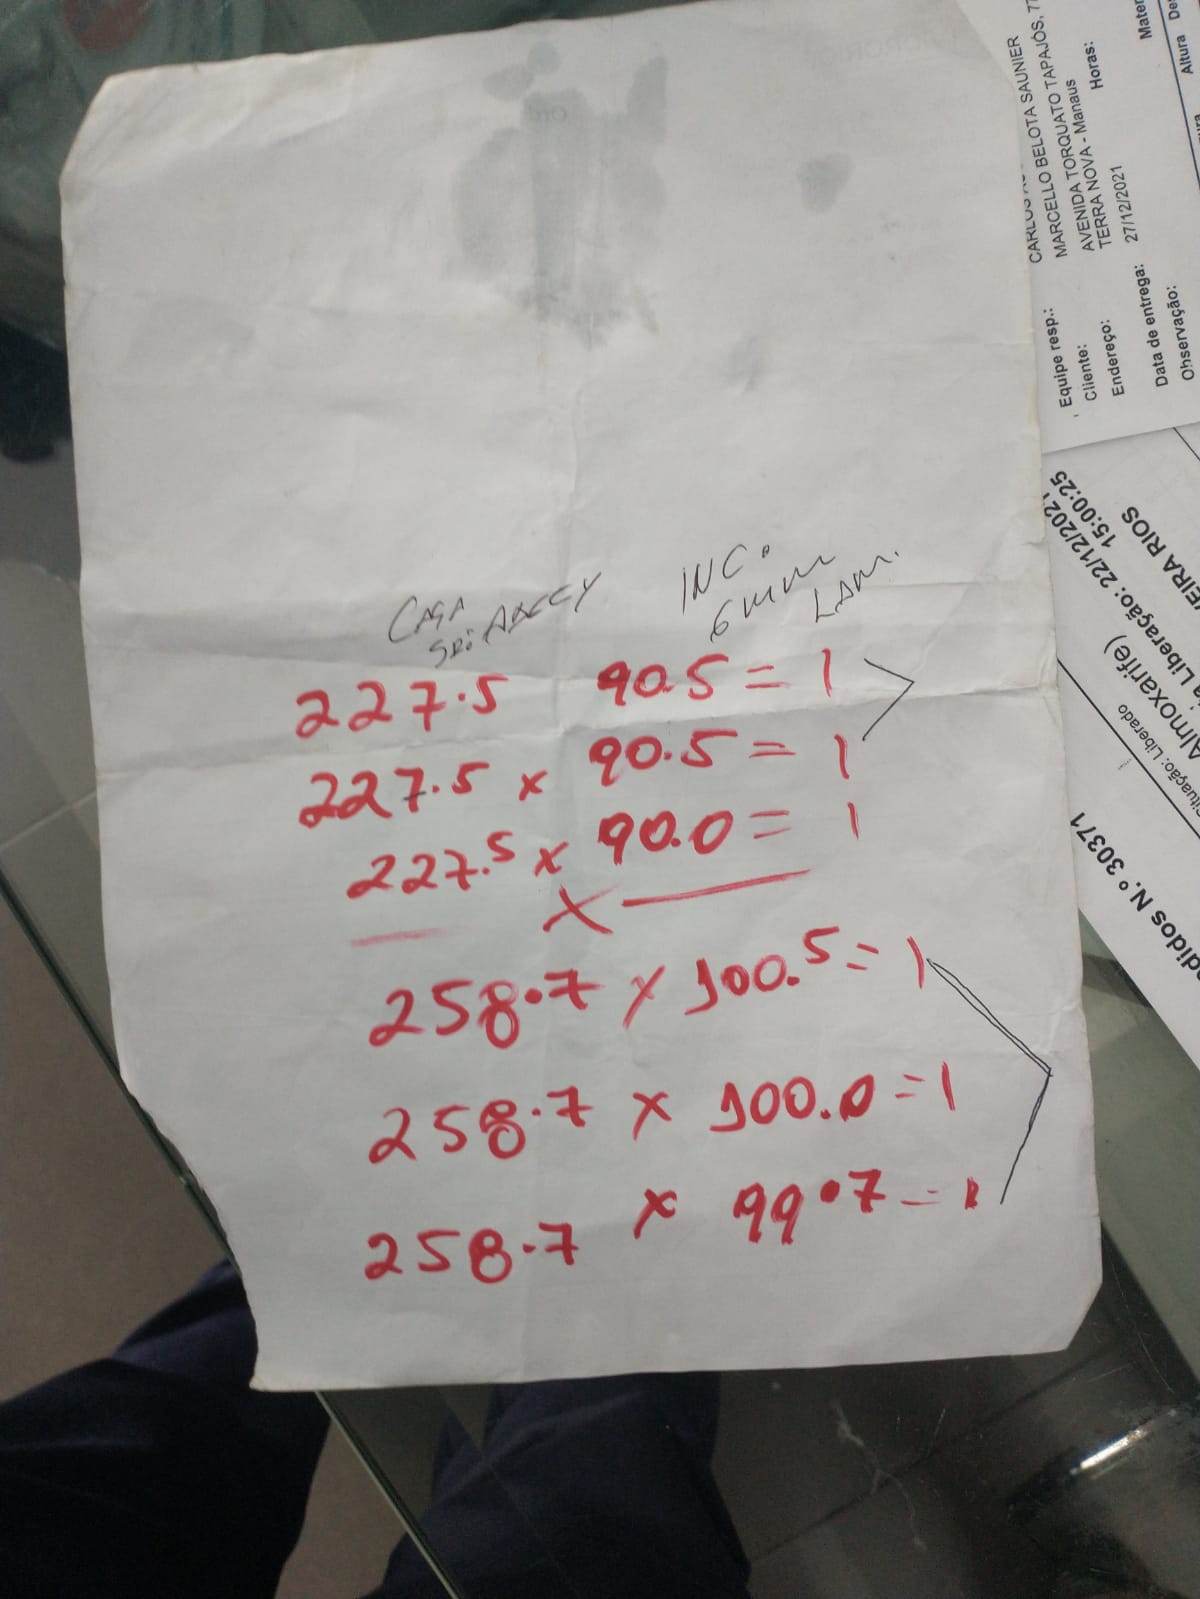 CASA INC:
SR: 6mm
LAM.
227.5 90.5 = 1
227.5 x 90.5 = 1
227.5 x 90.0 = 1
x
258.7 x 100.5 = 1
258.7 x 100.0 = 1
258.7 x 99.7 = 1
MARCELLO BELOTA SAUNIER
Equipe resp.:
Cliente: MARCELLO BELOTA TAPAJÓS, 77
Endereço: AVENIDA TORQUATO
TERRA NOVA - Manaus
Data de entrega: 27/12/2021 Horas:
Observação:
Altura
Liberação: 22/12/2021
15:00:25
EIRA RIOS
Almoxarife)
Situação: Liberado
didos N.º 30371